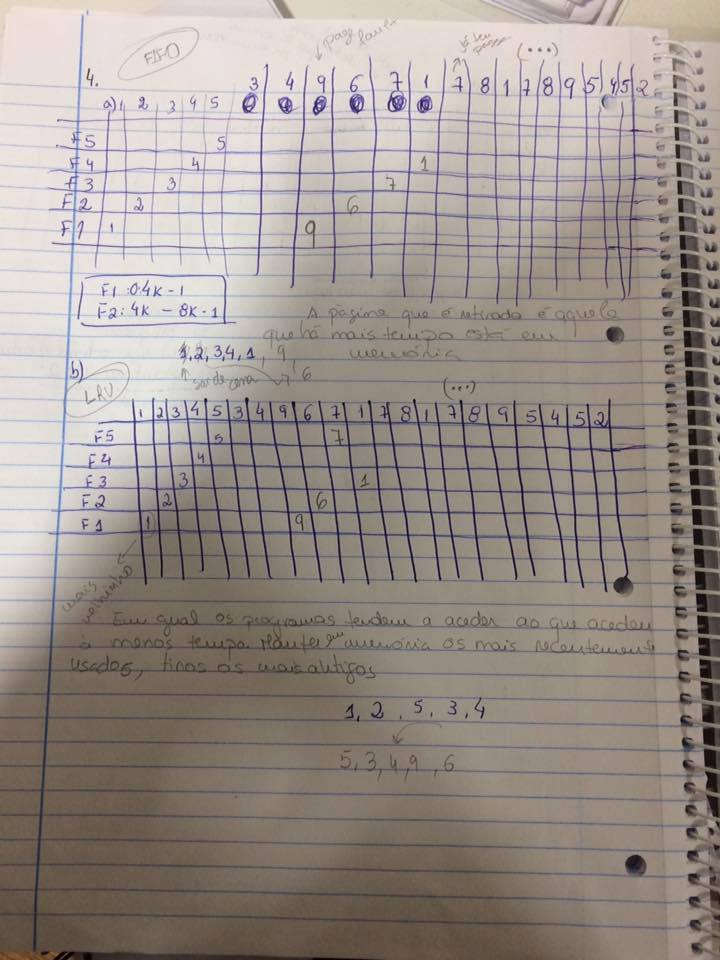 FIFO
pag fault
já tem
(...)
4.
3 4 9 6 7 1 7 8 1 7 8 9 5 4 5 2
a) 1 2 3 4 5
F5 5
F4 4 1
F3 3 7
F2 2 6
F1 1 9
F1: 0.4K - 1
F2: 4K - 8K - 1
A página que é retirada é aquela
que há mais tempo está em
memória
1, 2, 3, 4, 1, 9,
6
b)
LRU
(...)
1 2 3 4 5 3 4 9 6 7 1 7 8 1 7 8 9 5 4 5 2
F5 5 7
F4 4
F3 3 1
F2 2 6
F1 1 9
mais
velhinho
Em qual os programas tendem a aceder ao que acedeu
à menos tempo. Manter em memória os mais recentemente
usados, tiras os mais antigos
1, 2, 5, 3, 4
5, 3, 4, 9, 6